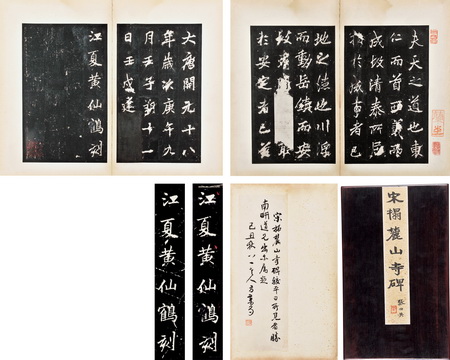 大唐開元十八
年歲次庚午九
月壬子朔十一
日壬戌建
江夏黃仙鶴刻
夫天之道也東
仁而首西義而
成故清泰所居
指於成事者已
地之德也川浮
而動岳鎮而安
故
於安定者已
江夏黃仙鶴刻
江夏黃仙鶴刻
宋拓麓山寺碑較平日所見者勝
南明道兄出示屬題
己丑秋八一
宋搨麓山寺碑